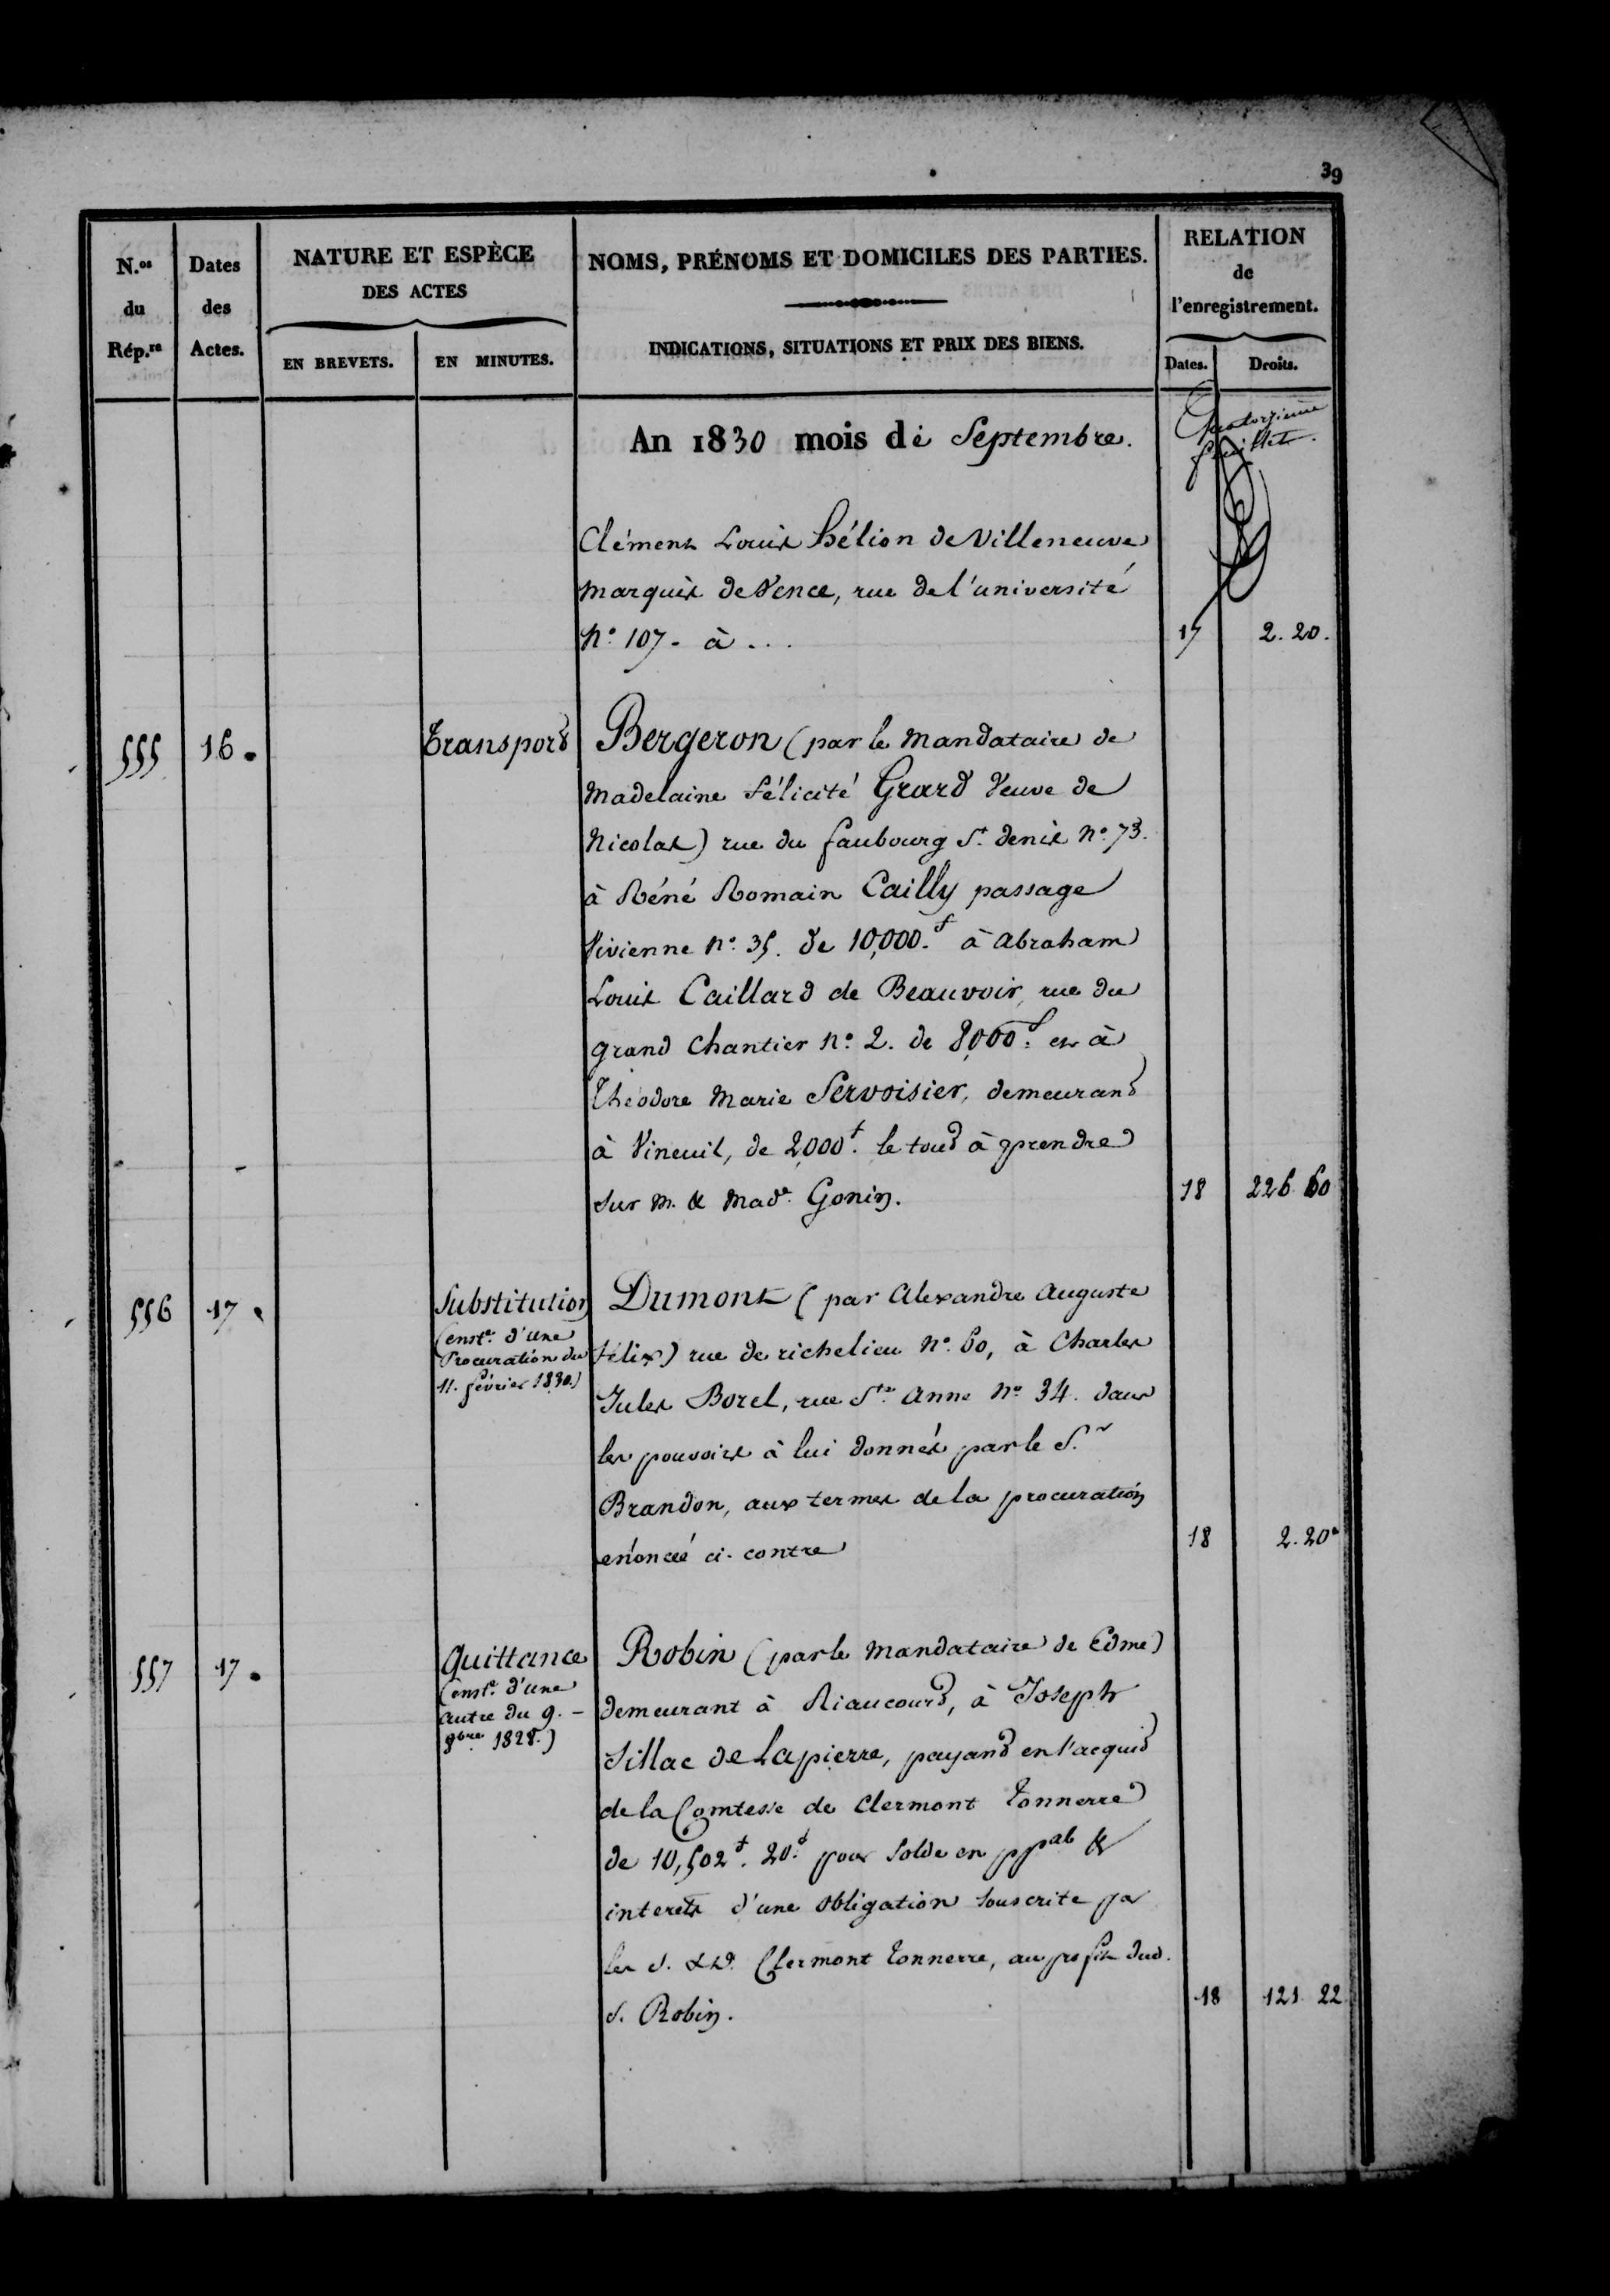 39
N.os du Rép.re
Dates des Actes.
NATURE ET ESPÈCE
DES ACTES
EN BREVETS.
EN MINUTES.
NOMS, PRÉNOMS ET DOMICILES DES PARTIES.
INDICATIONS, SITUATIONS ET PRIX DES BIENS.
RELATION
de
l'enregistrement.
Dates.
Droits.
An 1830 mois de Septembre.
Quatorzieme
feuillet.
Clément Louis hélion de Villeneuve
marquis de Vence, rue de l'université
N.o 107 - à ... 17 2. 20.
555 16. Transport Bergeron (par le mandataire de
Madelaine félicité Grard Veuve de
Nicolas) rue du faubourg St. denis No. 73.
à Réné Romain Cailly passage
Vivienne No. 35. de 10,000.f à abraham
Louis Caillard de Beauvoir, rue du
grand Chantier No. 2. de 8,000.f et à
Théodore Marie Servoisier, demeurant
à Vineuil, de 2,000f. le tout à prendre
sur M. & Made. Gonin. 18 226 60
556 17. Substitution Dumont (par Alexandre Auguste
(enste. d'une
Procuration du
11. février 1830.)
félix) rue de richelieu No. 60, à Charles
Jules Borel, rue Ste. Anne No. 34. dans
les pouvoirs à lui donnés par le S.r
Brandon, aux termes de la procuration
enoncée ci-contre 18 2. 20
557 17. Quittance Robin (par le mandataire de Edme)
(enste. d'une
autre du 9. -
9bre 1828.)
demeurant à Riaucourt, à Joseph
Sillac de Lapierre, payant en l'acquit
de la Comtesse de Clermont Tonnerre
de 10,502f. 20c. pour solde en ppal &
interets d'une obligation souscrite par
les S. & D. Clermont Tonnerre, au profit dud.
S. Robin. 18 121. 22